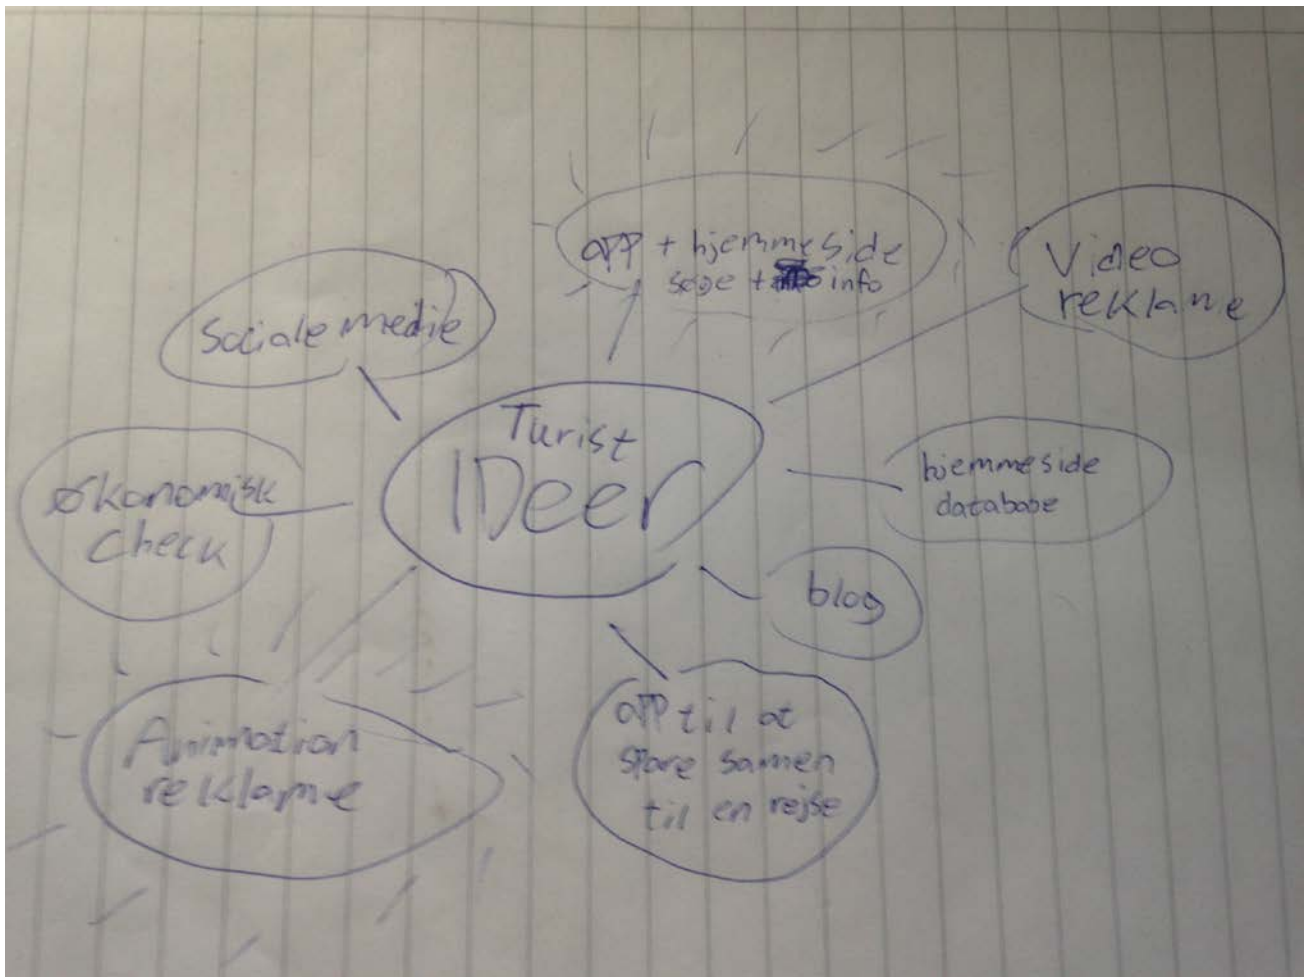 app + hjemmeside
søge + info
Video
reklame
Sociale medie
Turist
IDeer
hjemmeside
database
økonomisk
check
blog
Animation
reklame
app til at
spare samen
til en rejse